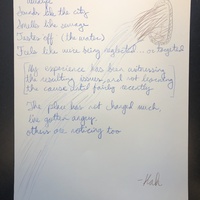 Sounds like the city
Smells like sewage
Tastes off (the water)
Feels like we're being neglected — or targeted
My experience has been witnessing
the resulting issues, and not knowing
the cause until fairly recently
The place has not changed much
I've gotten angry
others are noticing too